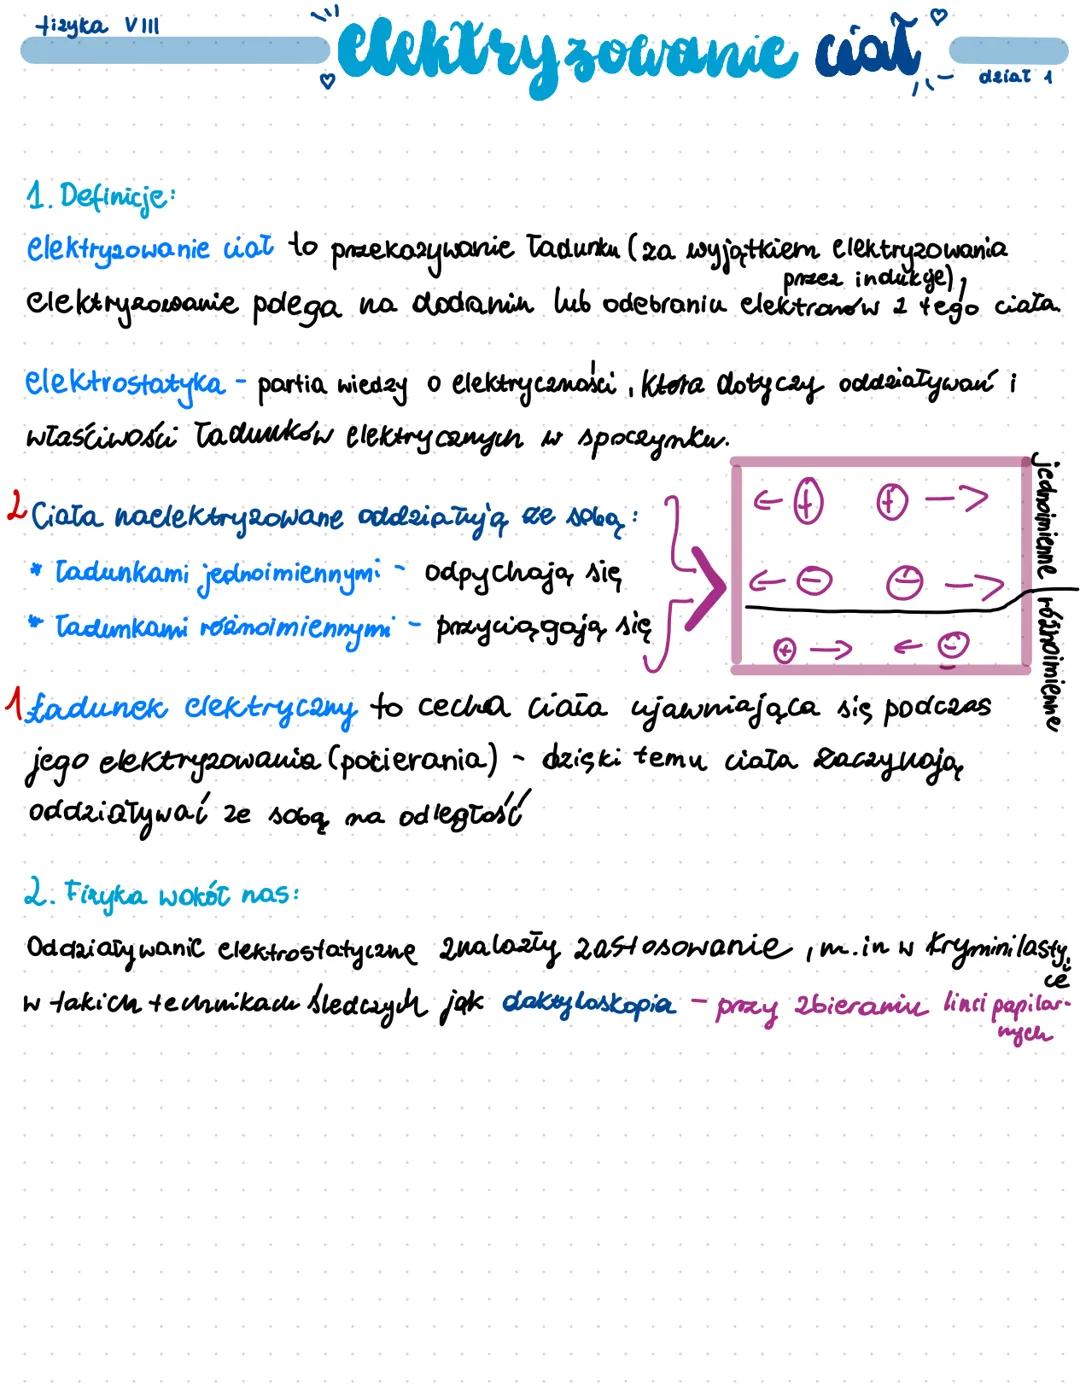 fizyka VIII
elektryzowanie ciał
dział 1
1. Definicje:
elektryzowanie ciał to przekazywanie ładunku (za wyjątkiem elektryzowania
przez indukcje),
elektryzowanie polega na dodaniu lub odebraniu elektronów z tego ciała.
elektrostatyka - partia wiedzy o elektryczności, która dotyczy oddziaływań i
właściwości ładunków elektrycznych w spoczynku.
2 Ciała naelektryzowane oddziałują ze sobą:
* ładunkami jednoimiennymi - odpychają się
* ładunkami różnoimiennymi - przyciągają się
← + + →
← - - →
+ → ← -
jednoimienne
różnoimienne
1 Ładunek elektryczny to cecha ciała ujawniająca się podczas
jego elektryzowania (pocierania) - dzięki temu ciała zaczynają
oddziaływać ze sobą na odległość
2. Fizyka wokół nas:
Oddziaływanie elektrostatyczne znalazły zastosowanie, m.in w kryminilasty,
ce
w takich technikach śledczych jak daktyloskopia - przy zbieraniu linii papilar-
nych